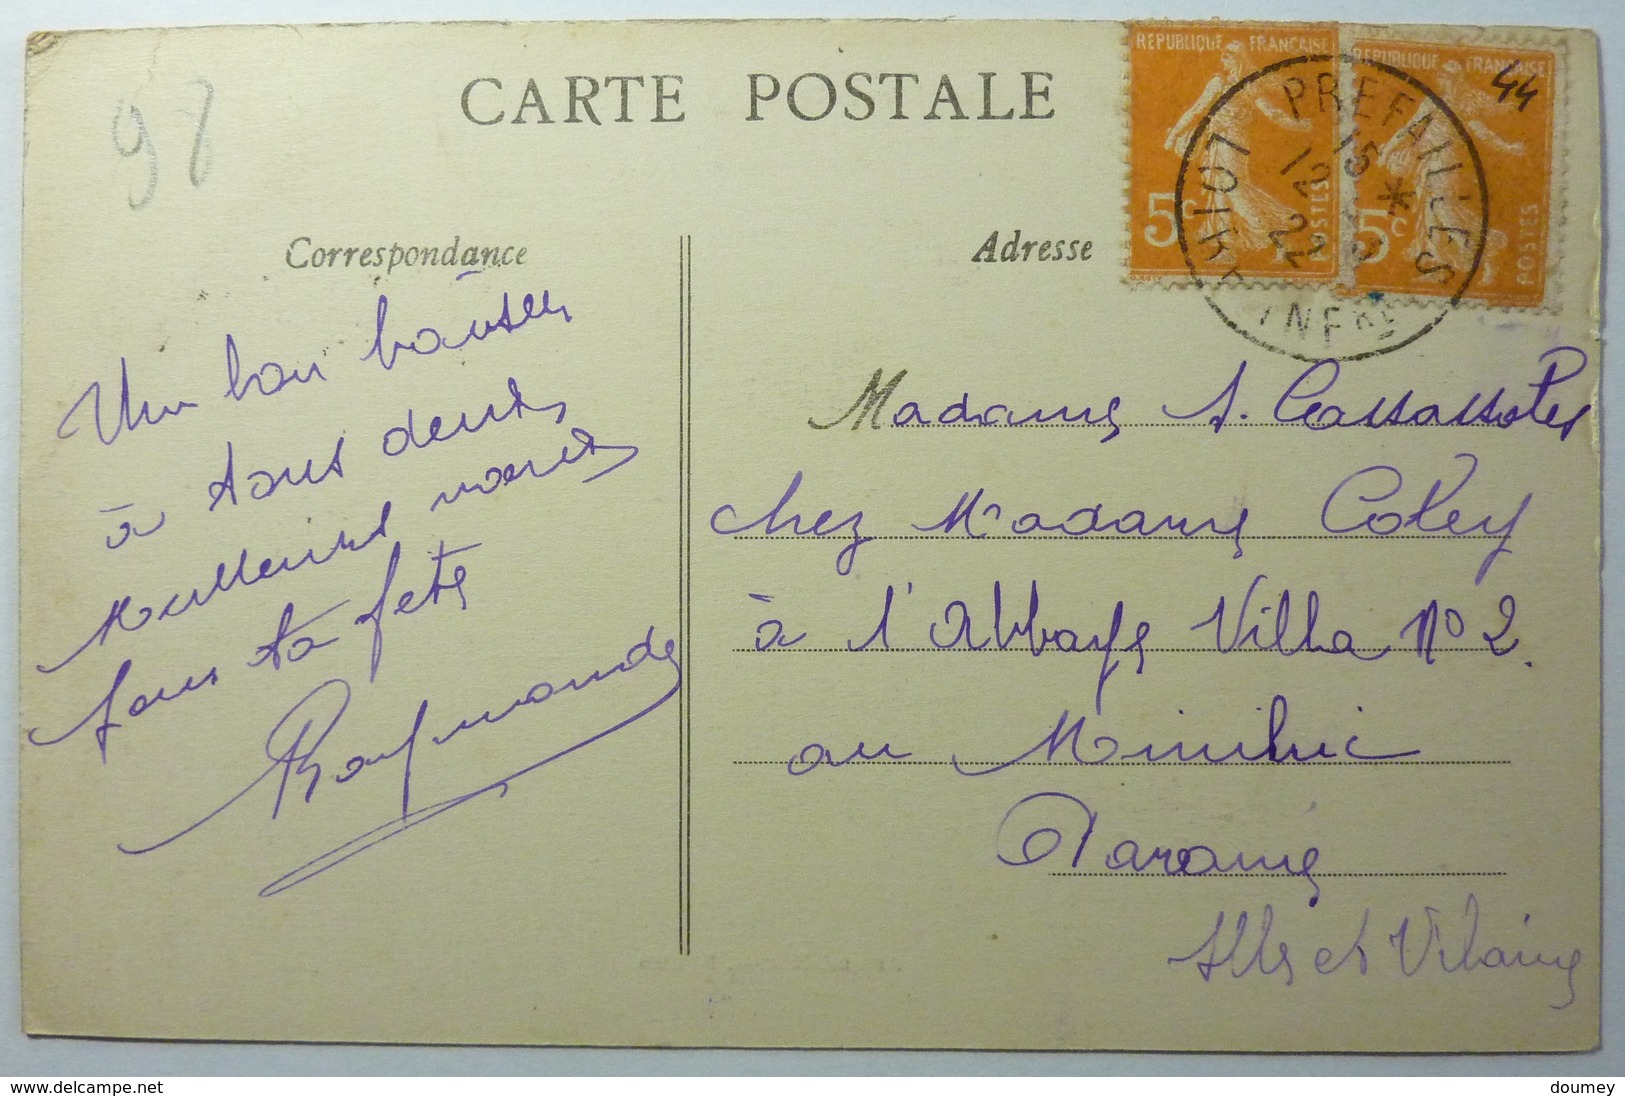 98
CARTE POSTALE
REPUBLIQUE FRANÇAISE
5c
POSTES
REPUBLIQUE FRANÇAISE
5c
POSTES
44
PREFAILLES
15
12 *
22
LOIRE INFRE
Correspondance
Adresse
Un bon baiser
à tous deux,
Meilleurs voeux
pour ta fête
Raymonde
Madame A.
chez Madame Coley
à l'Abbaye Villa No 2.
au Minihic
Paramé
Ille et Vilaine
www.delcampe.net
doumey